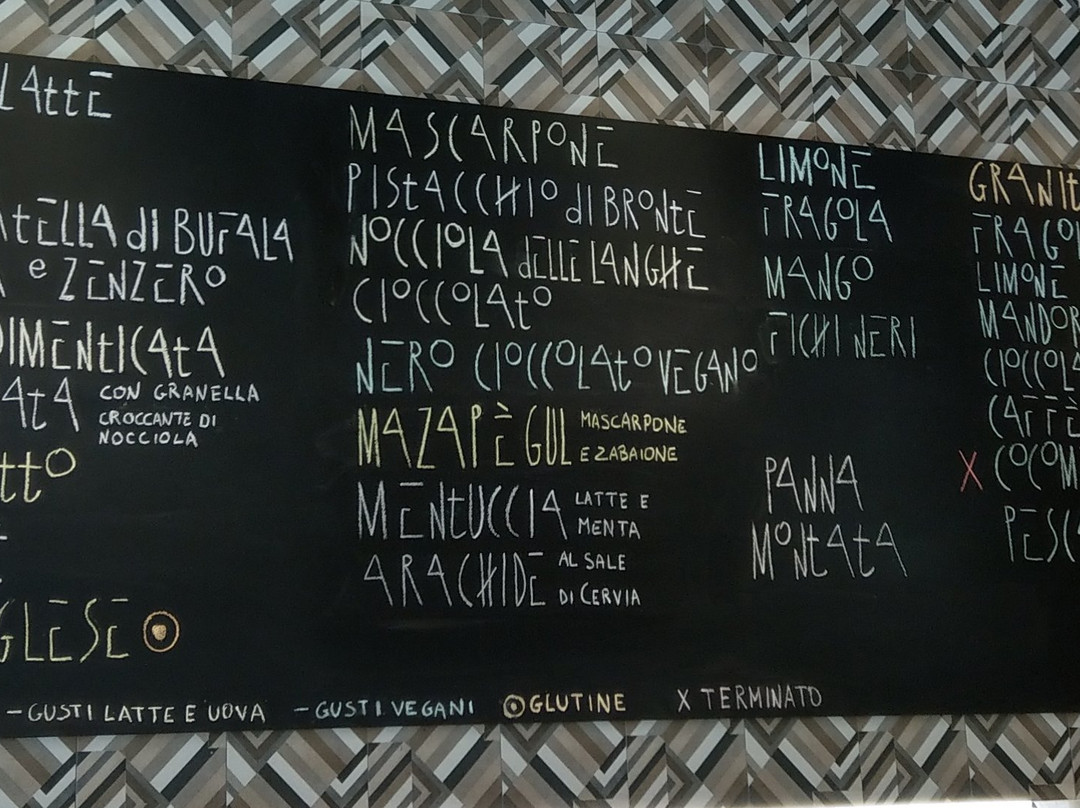 LATTE
DI BUFALA
E ZENZERO
DIMENTICATA
CON GRANELLA
CROCCANTE DI
NOCCIOLA
MASCARPONE
PISTACCHIO DI BRONTE
NOCCIOLA DELLE LANGHE
CIOCCOLATO
NERO CIOCCOLATO VEGANO
MAZAPÈGUL MASCARPONE
E ZABAIONE
MENTUCCIA LATTE E
MENTA
ARACHIDE AL SALE
DI CERVIA
LIMONE
FRAGOLA
MANGO
FICHI NERI
PANNA
MONTATA
GRANIT
FRAGOL
LIMONE
MANDOR
CIOCCOLA
CAFFÈ
X COCOM
PESC
- GUSTI LATTE E UOVA - GUSTI VEGANI GLUTINE X TERMINATO